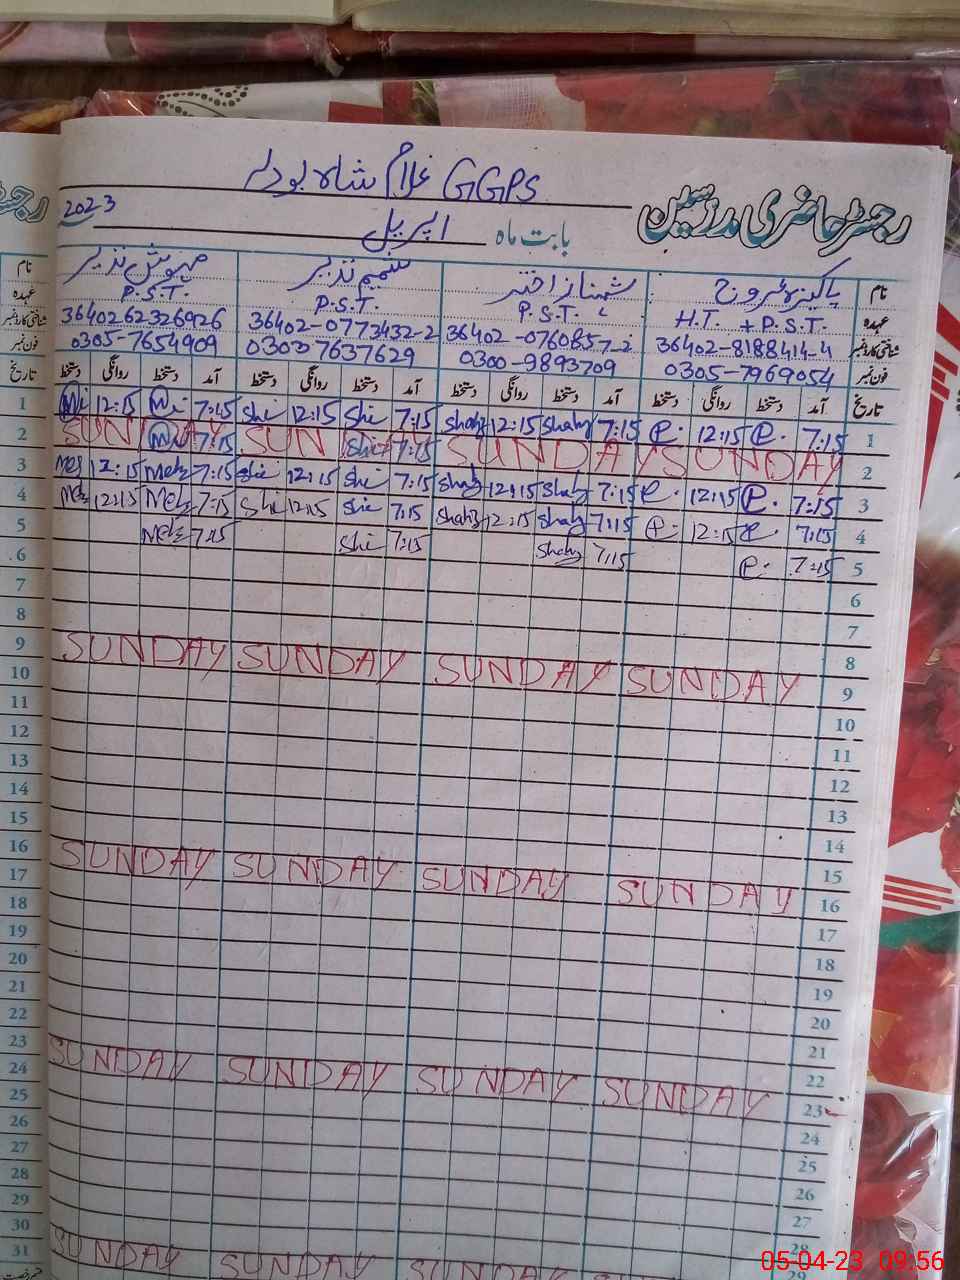 GGPS غلام شاہ بودلہ
رجسٹر حاضری مدرسین
بابت ماہ اپریل 2023
نام پاکیزہ عروج شہناز اختر شمیم نذیر مہوش نذیر نام
عہدہ H.T. + P.S.T. P.S.T. P.S.T. P.S.T. عہدہ
شناختی کارڈ نمبر 36402-8188414-4 36402-0760857-2 36402-0773432-2 3640262326926 شناختی کارڈ نمبر
فون نمبر 0305-7969054 0300-9893709 0300-7637629 0305-7654909 فون نمبر
تاریخ آمد دستخط روانگی دستخط آمد دستخط روانگی دستخط آمد دستخط روانگی دستخط آمد دستخط روانگی دستخط تاریخ
1 7:15 e. 12:15 e. 7:15 Shahz 12:15 Shahz 7:15 Shi 12:15 Shi 7:15 12:15 1
2 SUNDAY SUNDAY SUN 7:15 Shi SUNDAY 7:15 2
3 7:15 e. 12:15 e. 7:15 Shahz 12:15 Shahz 7:15 Shi 12:15 Shi 7:15 Meh 12:15 Meh 3
4 7:15 e. 12:15 e. 7:15 Shahz 12:15 Shahz 7:15 Shi 12:15 Shi 7:15 Meh 12:15 Meh 4
5 7:15 e. 7:15 Shahz 7:15 Shi 7:15 Meh 5
6 6
7 7
8 8
9 SUNDAY SUNDAY SUNDAY SUNDAY 9
10 10
11 11
12 12
13 13
14 14
15 15
16 SUNDAY SUNDAY SUNDAY SUNDAY 16
17 17
18 18
19 19
20 20
21 21
22 22
23 SUNDAY SUNDAY SUNDAY SUNDAY 23
24 24
25 25
26 26
27 27
28 28
29 29
SUNDAY SUNDAY SUNDAY 30
31
05-04-23 09:56